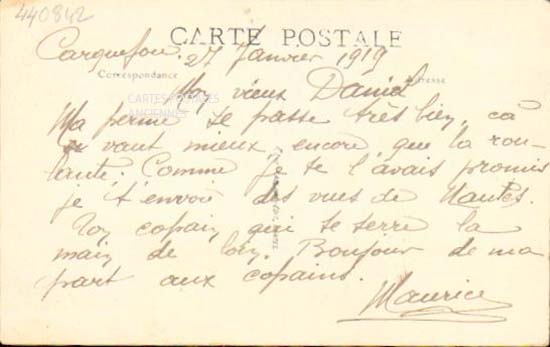 440842
CARTE POSTALE
Carquefou. 27 Janvier 1919
Correspondance
Adresse
Mon vieux Daniel
CARTES POSTALES
ANCIENNES
Ma perme se passe très bien, ca
vaut mieux encore que la rou-
lante. Comme je te l'avais promis
je t'envoie des vues de Nantes.
Ton copain qui te serre la
main de loin. Bonjour de ma
part aux copains.
Maurice